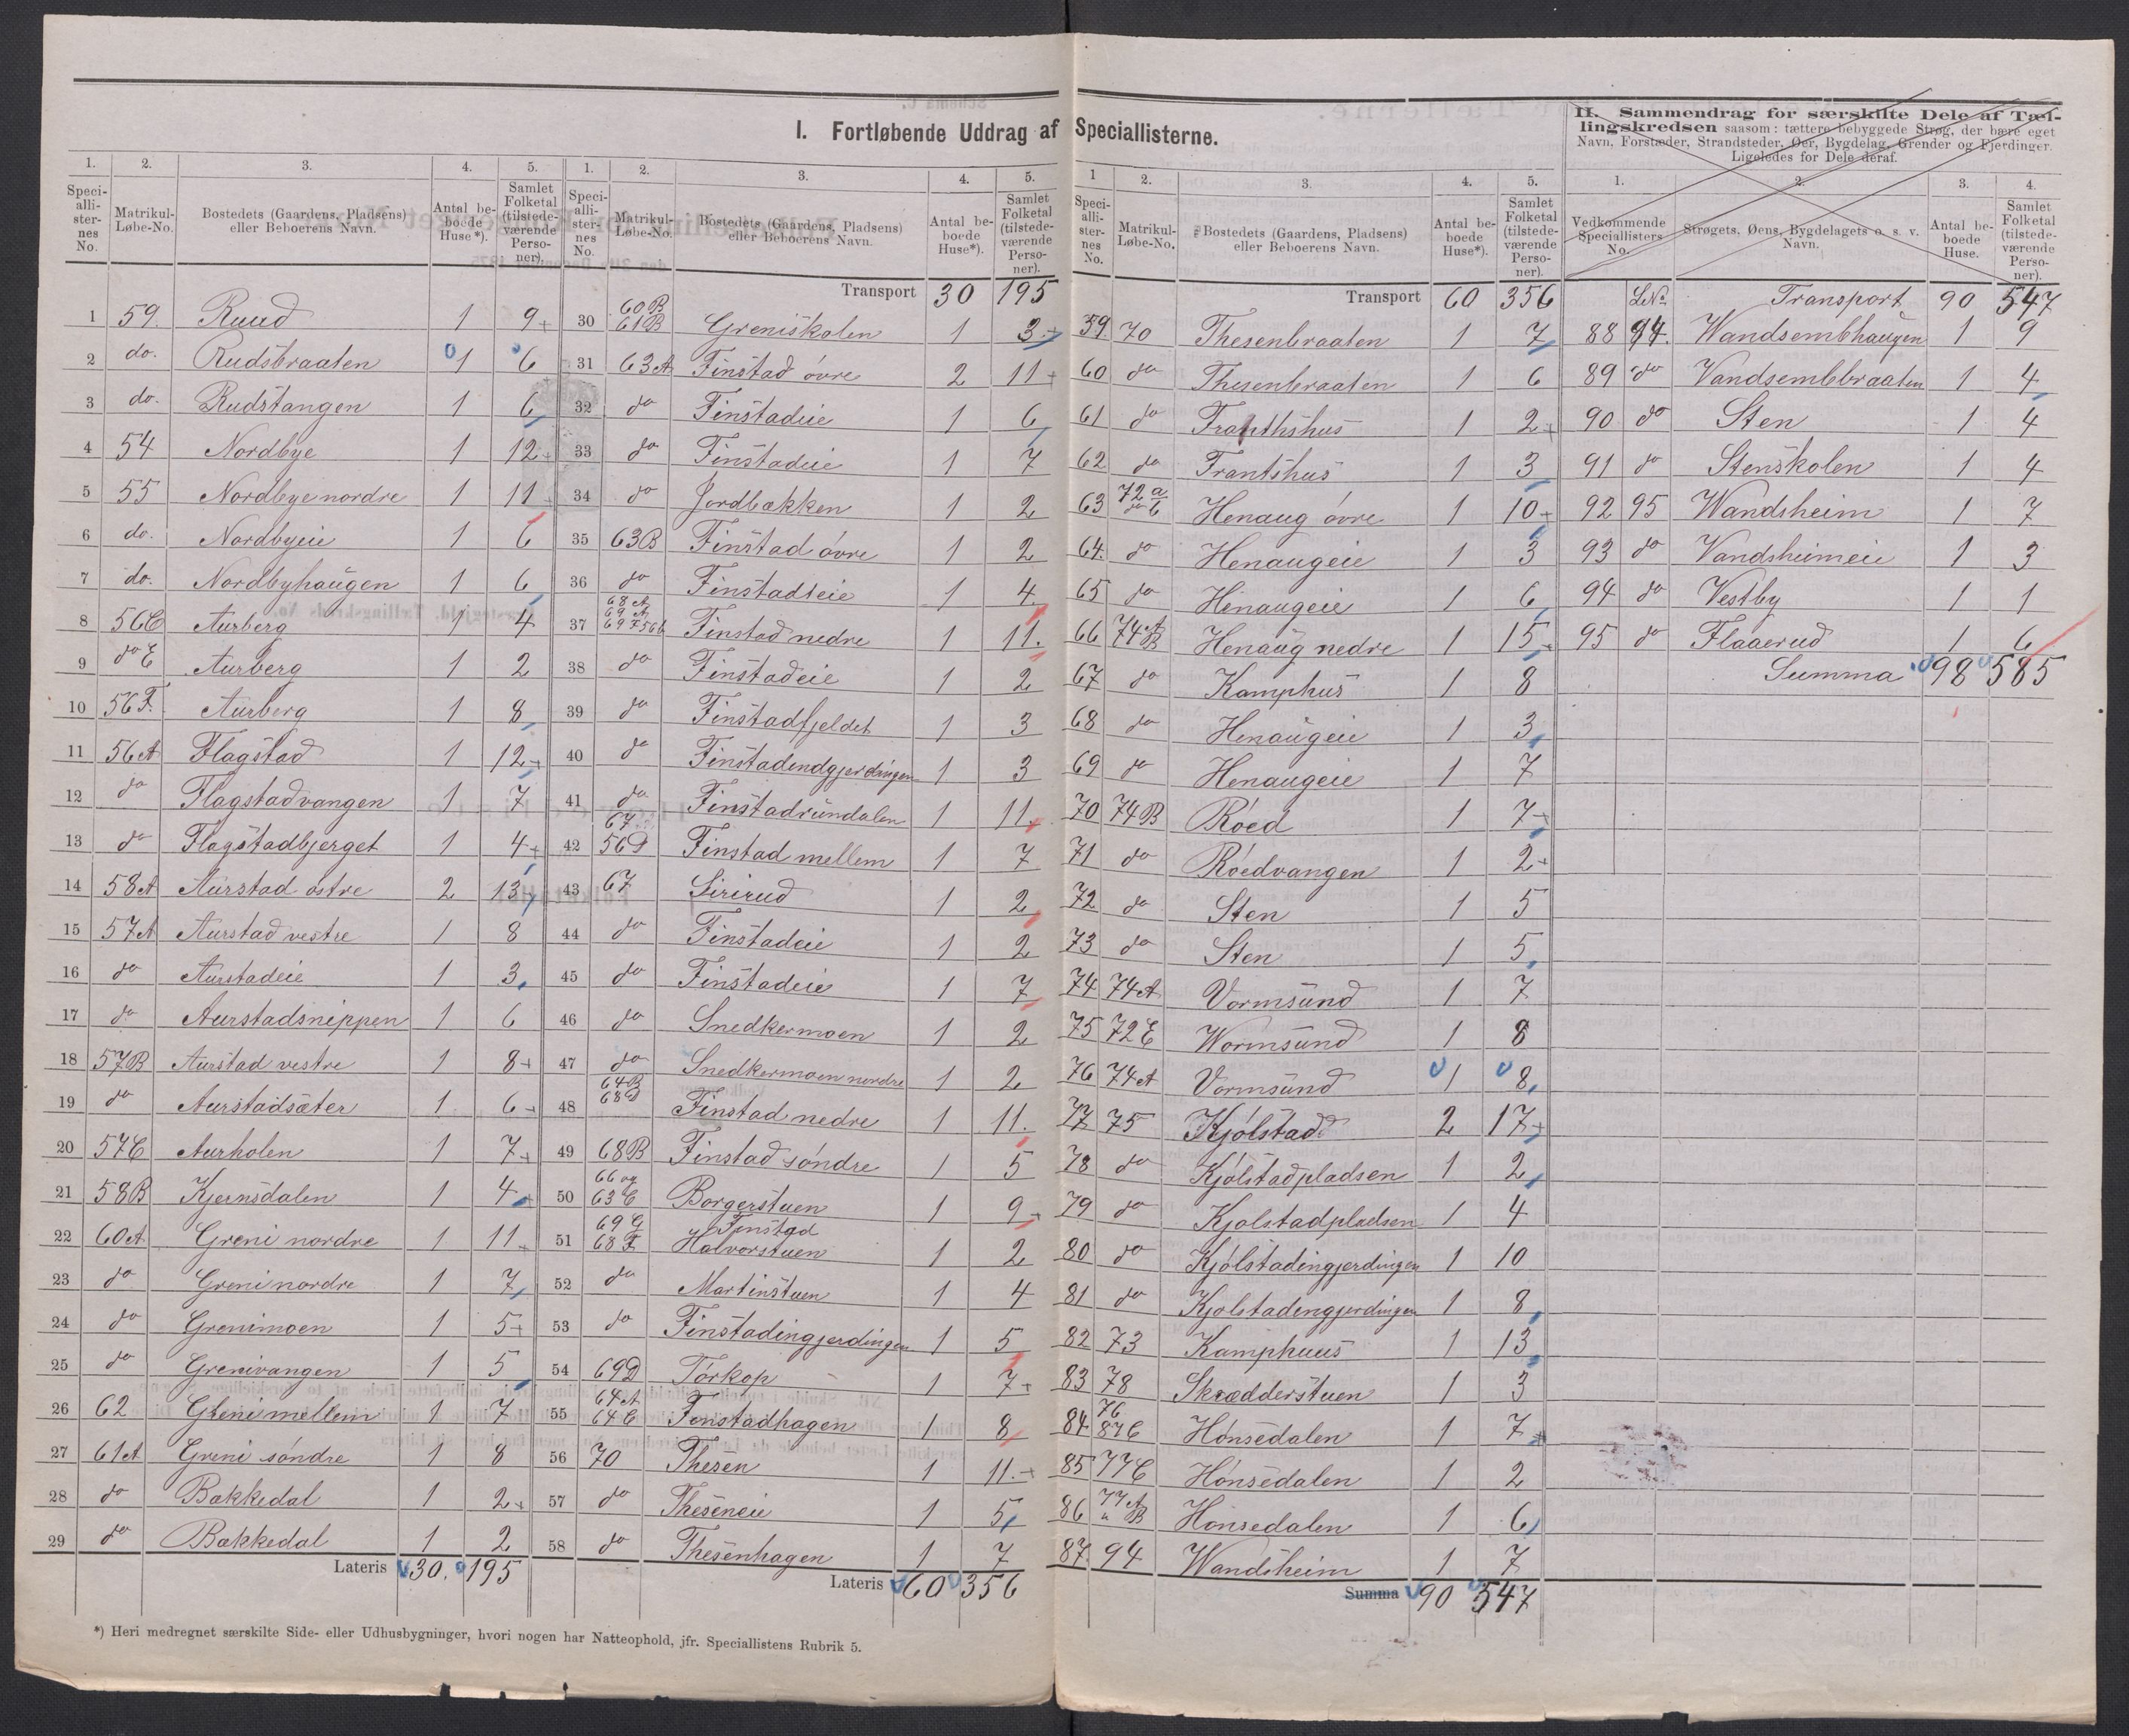 I. Fortløbende Uddrag af Speciallisterne.
1. 2. 3. 4. 5.
Speciallisternes No. Matrikul-Løbe-No. Bostedets (Gaardens, Pladsens) eller Beboerens Navn. Antal beboede Huse*). Samlet Folketal (tilstedeværende Personer).
1 59. Ruud 1 9
2 do. Rudsbraaten 1 6
3 do. Rudstangen 1 6
4 54 Nordbye 1 12
5 55 Nordbye nordre 1 11
6 do. Nordbyeie 1 6
7 do. Nordbyhaugen 1 6
8 56C Aurberg 1 4
9 do E Aurberg 1 2
10 56F. Aurberg 1 8
11 56A Flagstad 1 12
12 do Flagstadvangen 1 7
13 do Flagstadbjerget 1 4
14 58A Aurstad østre 2 13
15 57A Aurstad vestre 1 8
16 do Aurstadeie 1 3
17 do Aurstadsnippen 1 6
18 57B Aurstad vestre 1 8
19 do Aurstadsæter 1 6
20 57C Aurholen 1 7
21 58B Kjernsdalen 1 4
22 60A Greni nordre 1 11
23 do Greni nordre 1 7
24 do Grenimoen 1 5
25 do Grenivangen 1 5
26 62 Greni mellem 1 7
27 61A Greni søndre 1 8
28 do Bakkedal 1 2
29 do Bakkedal 1 2
Lateris 30. 195
1. 2. 3. 4. 5.
Speciallisternes No. Matrikul-Løbe-No. Bostedets (Gaardens, Pladsens) eller Beboerens Navn. Antal beboede Huse*). Samlet Folketal (tilstedeværende Personer).
Transport 30 195
30 60B 61B Greniskolen 1 3
31 63A Finstad øvre 2 11
32 do Finstadeie 1 6
33 do Finstadeie 1 7
34 do Jordbakken 1 2
35 63B Finstad øvre 1 2
36 do Finstadseie 1 4
37 68A 69A 69F 56b Finstad nedre 1 11.
38 do Finstadeie 1 2
39 do Finstadfjeldet 1 3
40 do Finstadendgjerdingen 1 3
41 do Finstadrundalen 1 11.
42 67 56D Finstad mellem 1 7
43 67 Sirirud 1 2
44 do Finstadeie 1 2
45 do Finstadeie 1 7
46 do Snedkermoen 1 2
47 do Snedkermoen nordre 1 2
48 64B 68D Finstad nedre 1 11.
49 68B Finstad søndre 1 5
50 66 og 63C Borgerstuen 1 9
51 69G 68F Finstad Halvorstuen 1 2
52 do Martinstuen 1 4
53 do Finstadingjerdingen 1 5
54 69D Tørkop 1 7
55 64A 64C Finstadhagen 1 8
56 70 Thesen 1 11.
57 do Theseneie 1 5
58 do Thesenhagen 1 7
Lateris 60 356
1 2. 3. 4. 5.
Speciallisternes No. Matrikul-Løbe-No. Bostedets (Gaardens, Pladsens) eller Beboerens Navn. Antal beboede Huse*). Samlet Folketal (tilstedeværende Personer).
Transport 60 356
59. 70 Thesenbraaten 1 7
60 do Thesenbraaten 1 6
61 do Franthshus 1 2
62 do Frantshus 1 3
63 72 a do b Henaug øvre 1 10
64. do Henaugeie 1 3
65 do Henaugeie 1 6
66 74 A B Henaug nedre 1 15
67 do Kamphus 1 8
68 do Henaugeie 1 3
69 do Henaugeie 1 7
70 74B Røed 1 7
71 do Røedvangen 1 2
72 do Sten 1 5
73 do Sten 1 5
74 74A Vormsund 1 7
75 72E Wormsund 1 8
76 74A Vormsund 1 8
77 75 Kjølstad 2 17
78 do Kjølstadpladsen 1 2
79 do Kjølstadpladsen 1 4
80 do Kjølstadingjerdingen 1 10
81 do Kjølstadengjerdingen 1 8
82 73 Kamphuus 1 13
83 78 Skrædderstuen 1 3
84 76 87C Hønsedalen 1 7
85 77C Hønsedalen 1 2
86 77A " B Hønsedalen 1 6
87. 94 Wandsheim 1 7
Summa 90 547
II. Sammendrag for særskilte Dele af Tællingskredsen saasom: tættere bebyggede Strøg, der bære eget
Navn, Forstæder, Strandsteder, Øer, Bygdelag, Grender og Fjerdinger.
Ligeledes for Dele deraf.
1. 2. 3. 4.
Vedkommende Speciallisters No. Strøgets, Øens, Bygdelagets o. s. v. Navn. Antal beboede Huse. Samlet Folketal (tilstedeværende Personer).
LNo Transport 90 547
88 94. Wandsembhaugen 1 9
89 do Vandsembbraaten 1 4
90 do Sten 1 4
91 do Stenskolen 1 4
92 95 Wandsheim 1 7
93 do Vandsheimeie 1 3
94 do Vestby 1 1
95 do Flaaerud 1 6
Summa 98 585
*) Heri medregnet særskilte Side- eller Udhusbygninger, hvori nogen har Natteophold, jfr. Speciallistens Rubrik 5.